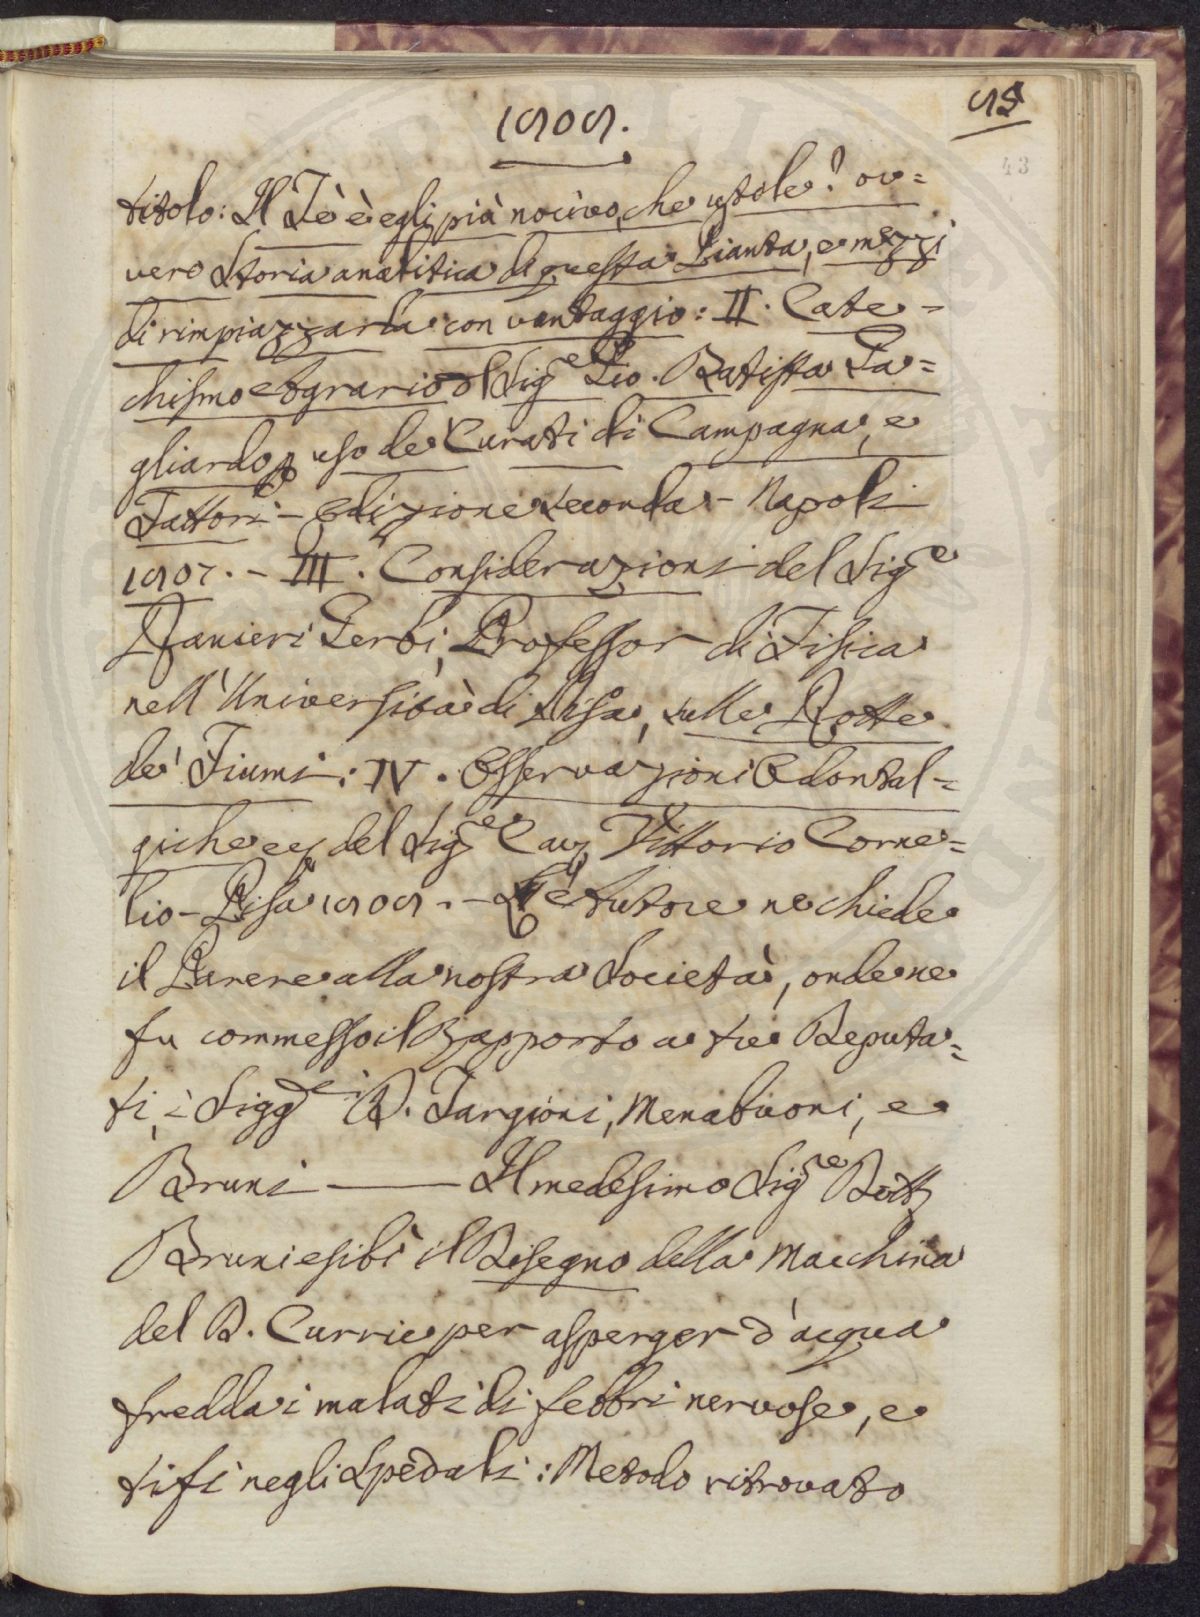 1808.
58
43
titolo: Il Tè è egli più nocivo, che utole? ov=
vero Storia analitica di questa Pianta, e mezzi
di rimpiazzarla con vantaggio: II. Cate=
chismo Agrario del Sigre Gio. Batista Ga=
gliardo p uso de Curati di Campagna, e
Fattori - Edizione seconda - Napoli
1807. - III. Considerazioni del Sigre
Ranieri Gerbi, Professor di Fisica
nell'Università di Pisa, sulle Rotte
de' Fiumi: IV. Osservazioni Odontal=
giche del Sigre Cav. Vittorio Corne=
lio - Pisa 1808. - L'Autore ne chiede
il Parere alla nostra Società, onde ne
fu commesso il Rapporto a tre Deputa=
ti, i Siggri D. Targioni, Menabuoni, e
Bruni — Il medesimo Sigre Dott
Bruni esibì il Disegno della Macchina
del D. Currie per asperger d'acqua
fredda i malati di febbri nervose, e
tifi negli Spedali: Metodo ritrovato